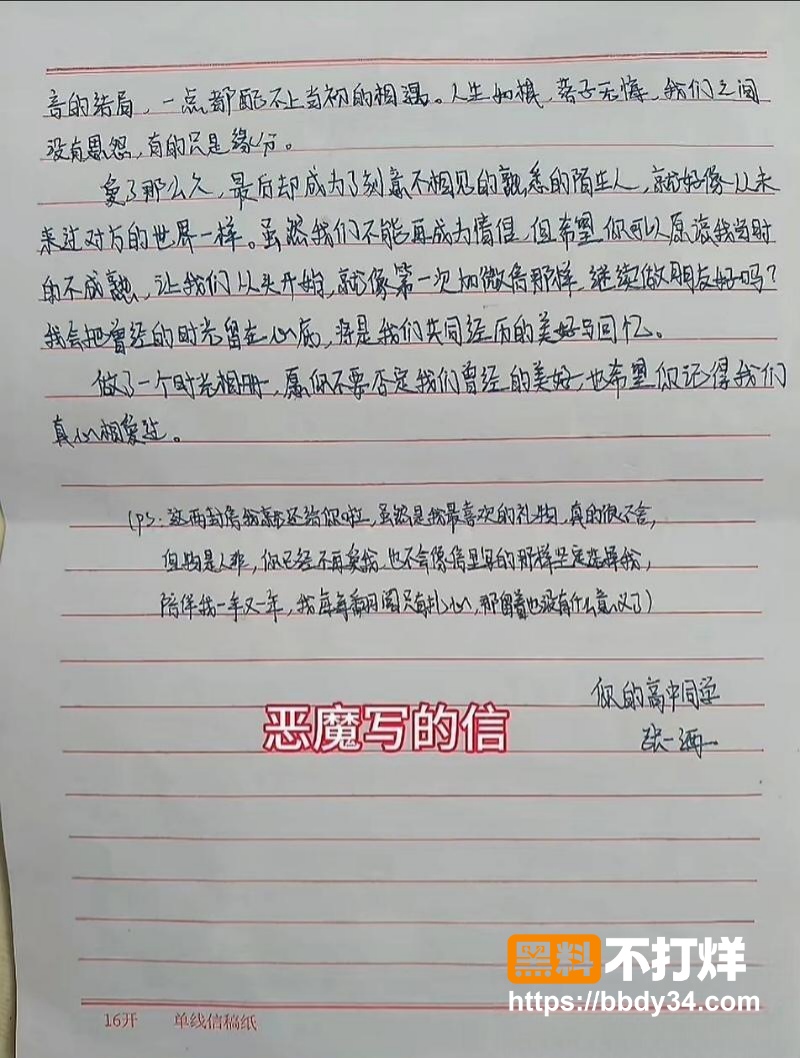 音的结局，一点都配不上当初的相遇。人生如棋，落子无悔，我们之间
没有恩怨，有的只是缘分。
爱了那么久，最后却成为了刻意不相见的熟悉的陌生人，就好像从未
来过对方的世界一样。虽然我们不能再成为情侣，但希望你可以原谅我当时
的不成熟，让我们从头开始，就像第一次加微信那样，继续做朋友好吗？
我会把曾经的时光留在心底，将是我们共同经历的美好与回忆。
做了一个时光相册，愿你不要否定我们曾经的美好，也希望你记得我们
真心相爱过。
(ps：这两封信我就还给你啦，虽然是我最喜欢的礼物，真的很不舍，
但物是人非，你已经不再爱我，也不会像信里写的那样坚定选择我，
陪伴我一年又一年，我每每翻阅只有扎心，那留着也没有什么意义了)
你的高中同学
张一
恶魔写的信
黑料不打烊
https://bbdy34.com
16开 单线信稿纸